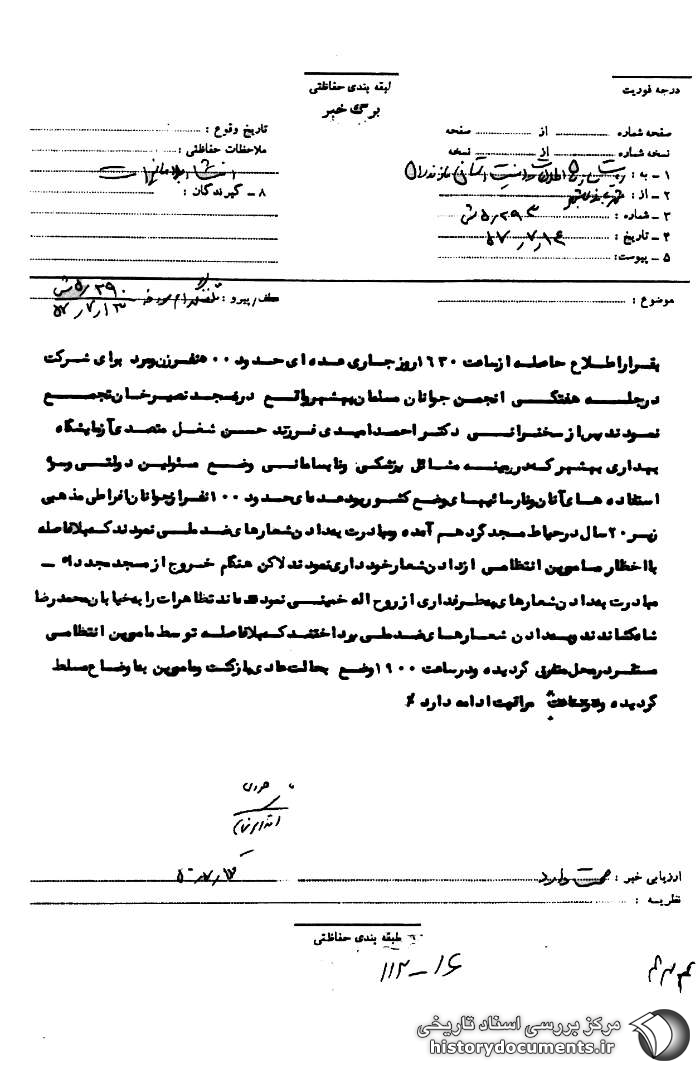 درجه فوریت
طبقه بندی حفاظتی
برگ خبر
صفحه شماره ........ از ........ صفحه
نسخه شماره ........ از ........ نسخه
۱ – به : ریاست سازمان اطلاعات و امنیت استان مازندران
۲ – از :
۳ – شماره : ۵٫۲۹۳ ش
۴ – تاریخ : ۵۷٫۷٫۱۴
۵ – پیوست:
تاریخ وقوع :
ملاحظات حفاظتی :
۸ – گیرندگان :
موضوع :
عطف/پیرو : تلفنگرام مورخه
۵٫۲۹۰ ش
۵۷٫۷٫۱۳
بقراراطلاع حاصله ازساعت ۱۶۳۰ روزجاری عده ای حدود ۵۰۰ نفرزن ومرد برای شرکت
درجلسه هفتگی انجمن جوانان مسلمان بهشهرواقع درمسجد نصیرخان تجمع
نمودند پس از سخنرانی دکتر احمد امیدی فرزند حسن شغل متصدی آزمایشگاه
بهداری بهشهر که در زمینه مسائل پزشکی ونابسامانی وضع مسئولین دولتی وسوء
استفاده های آنان ونارسائیهای وضع کشوربود عده ای حدود ۱۰۰ نفر ازجوانان افراطی مذهبی
زیر ۲۰ سال درحیاط مسجد گردهم آمده ومبادرت بدادن شعارهای ضد ملی نمودند که بلافاصله
بااخطار مامورین انتظامی ازدادن شعار خودداری نمودند لاکن هنگام خروج از مسجد مجددا" –
مبادرت بدادن شعارهای بطرفداری از روح اله خمینی نموده ماند تظاهرات را به خیابان محمدرضا
شاه کشاندند وبدادن شعارهای ضد ملی پرداختند که بلافاصله توسط مامورین انتظامی
مستقر در محل متفرق گردیده ودرساعت ۱۹۰۰ وضع بحالت عادی بازگشت ومامورین به اوضاع مسلط
گردیده مراقبت ادامه دارد ٪
ارزیابی خبر : صحت دارد
نظریه :
طبقه بندی حفاظتی
۱۱۲–۱۶
مرکز بررسی اسناد تاریخی
historydocuments.ir